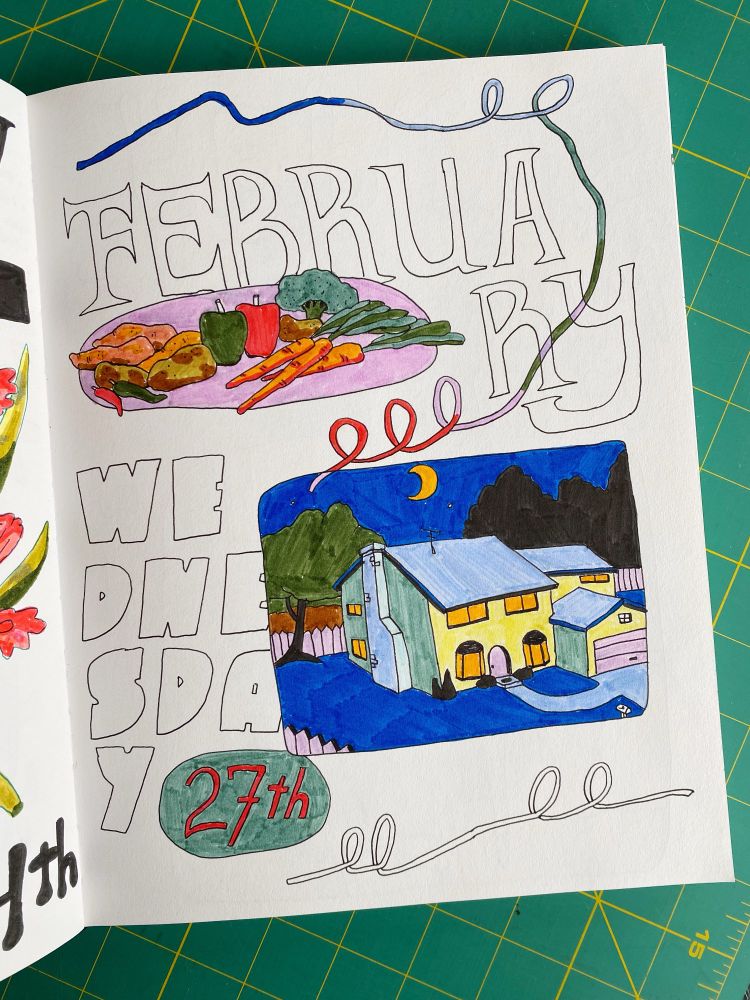 FEBRUA
RY
WE
DNE
SDA
Y
27th
th
15